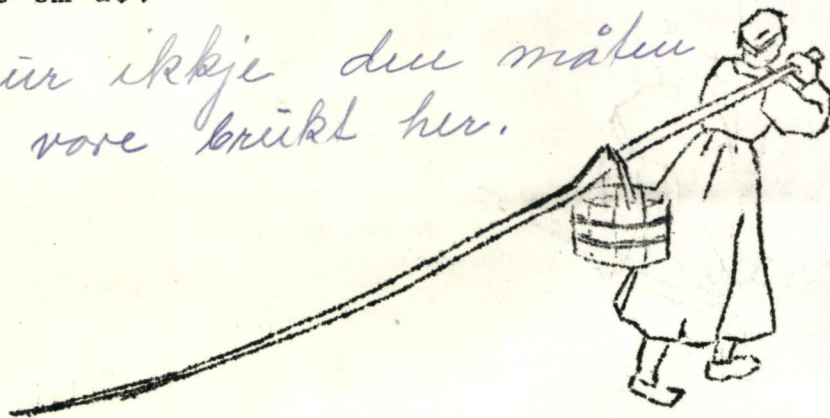 ikkje den måten
vore brukt her.